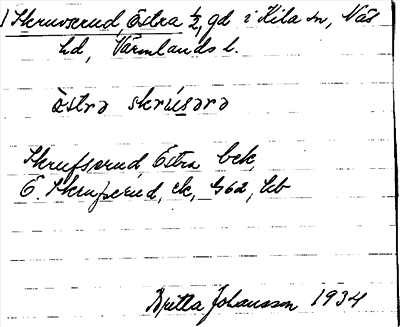 1 Skruvarud, Östra ½, gd i Kila sn, Näs
hd, Värmlands l.
östrə skrúsərə
Skrufserud, Östra bek,
Ö. Skrufserud, ek, G62, hb
Britta Johansson 1934